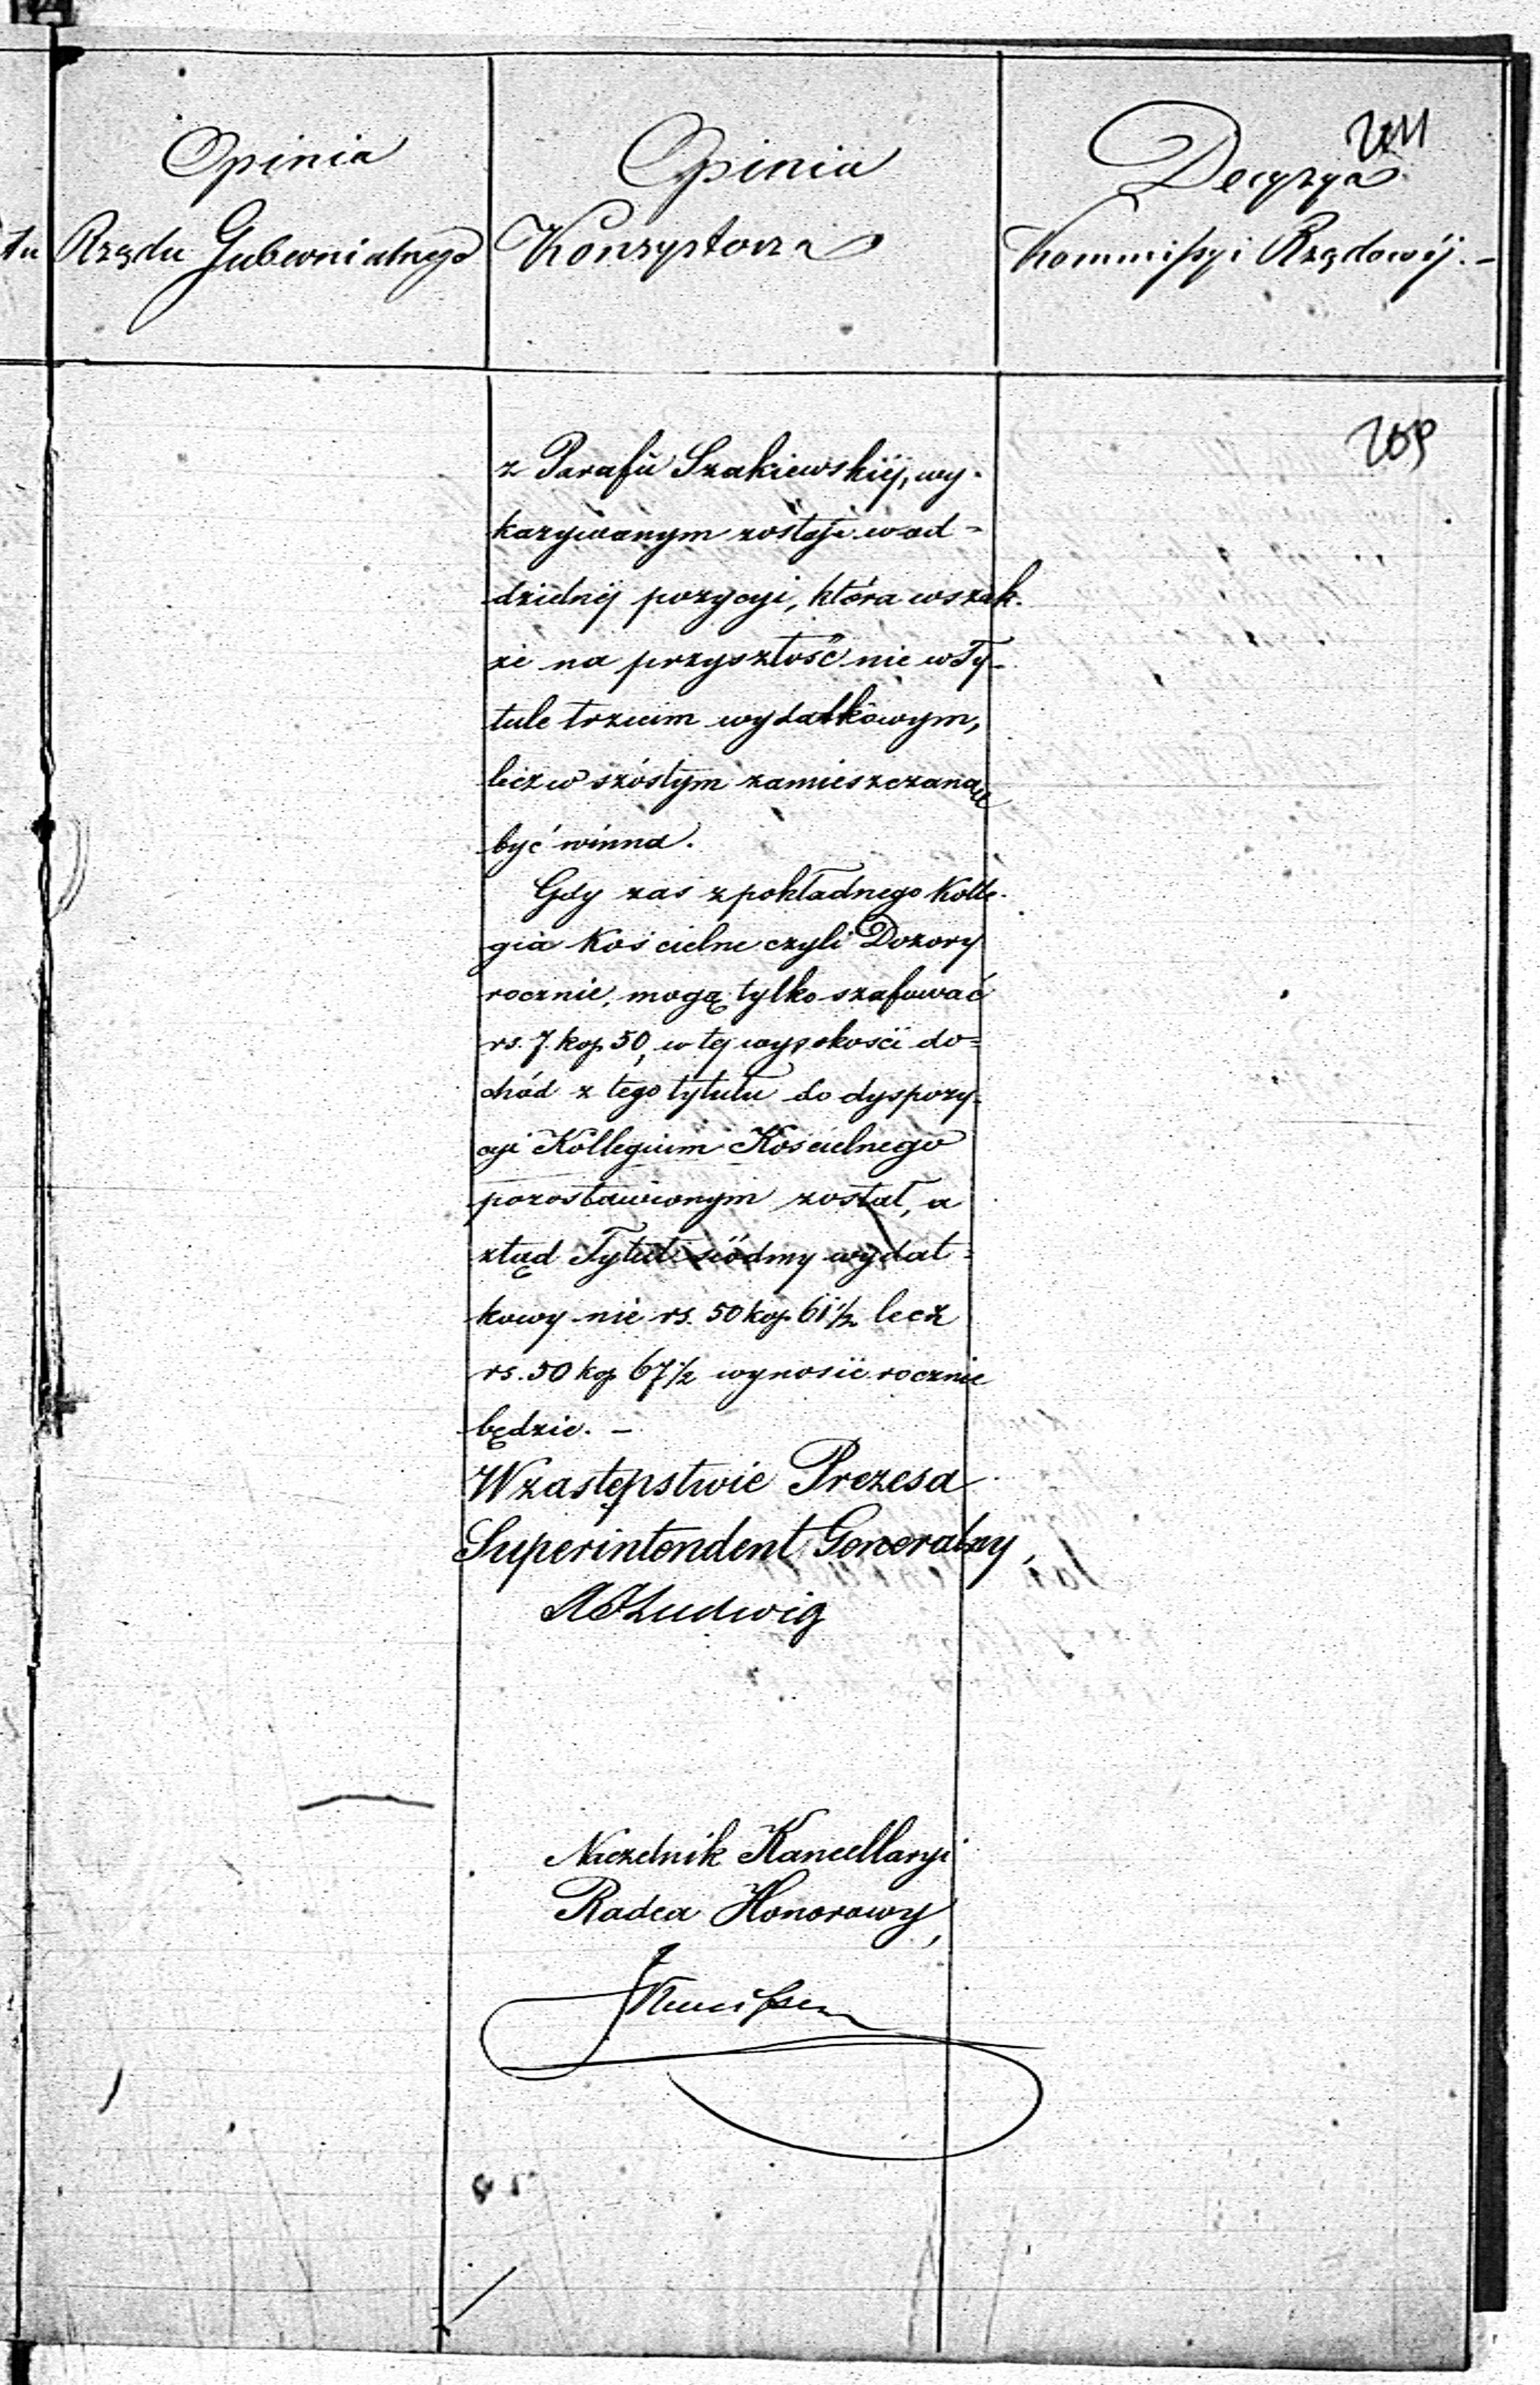 Opinia
Rządu Gubernialnego
Opinia
Konsystorza
Decyzya
Kommissyi Rządowéj. -
209
z Parafii Szakiewskiéj, wy-
kazywanym zostaje w od-
dzielnéj pozycyi, która wszak-
że na przyszłość nie w Ty-
tule trzecim wydatkowym,
lecz w szóstym zamieszczaną
być winna.
Gdy zaś z pokładnego Kolle-
gia Kościelne czyli Dozory
rocznie, mogą tylko szafować
rs. 7. kop 50, w téj wysokości do-
chód z tego tytułu do dyspozy-
cyi Kollegium Kościelnego
pozostawionym został, a
ztąd Tytuł siódmy wydat-
kowy nie rs. 50 kop. 61 1/2 lecz
rs. 50 kop 67 1/2 wynosić rocznie
będzie. -
W zastępstwie Prezesa
Superintendent Generalny,
Ludwig
Naczelnik Kancellaryi
Radca Honorowy,